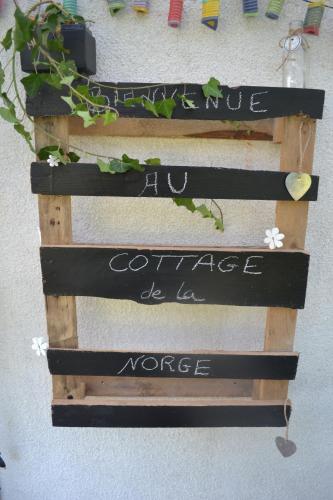 BIENVENUE
AU
COTTAGE
de la
NORGE